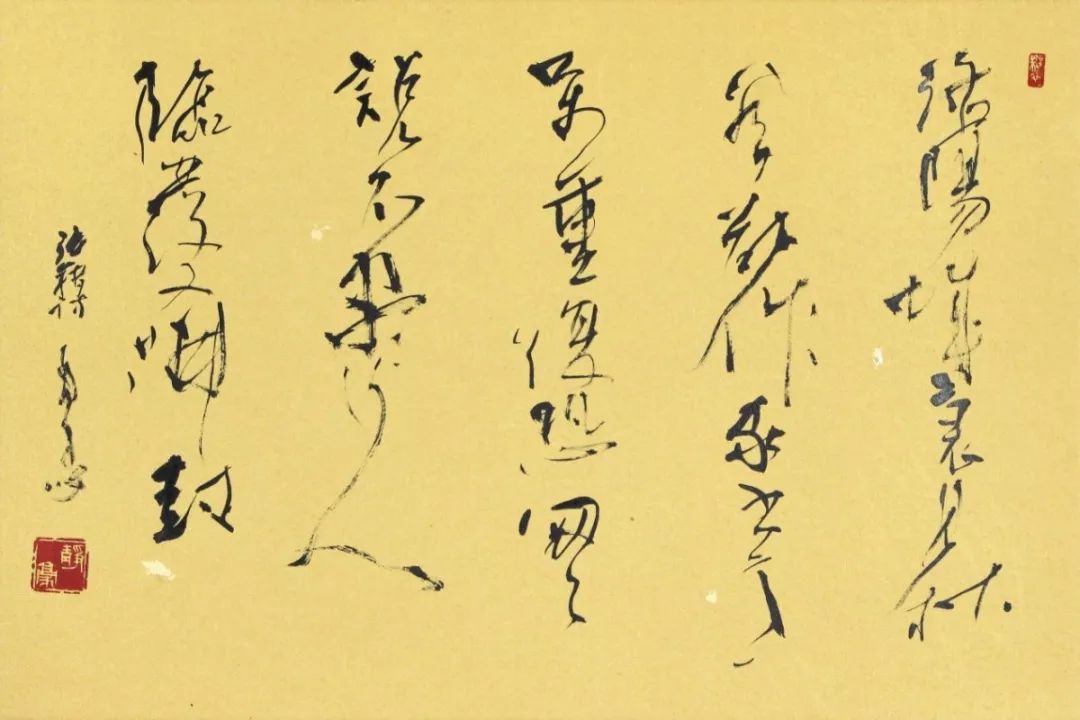 洛陽城裏見秋
風欲作家書意
萬重復恐匆々
說不盡行人
臨發又開封
張籍詩